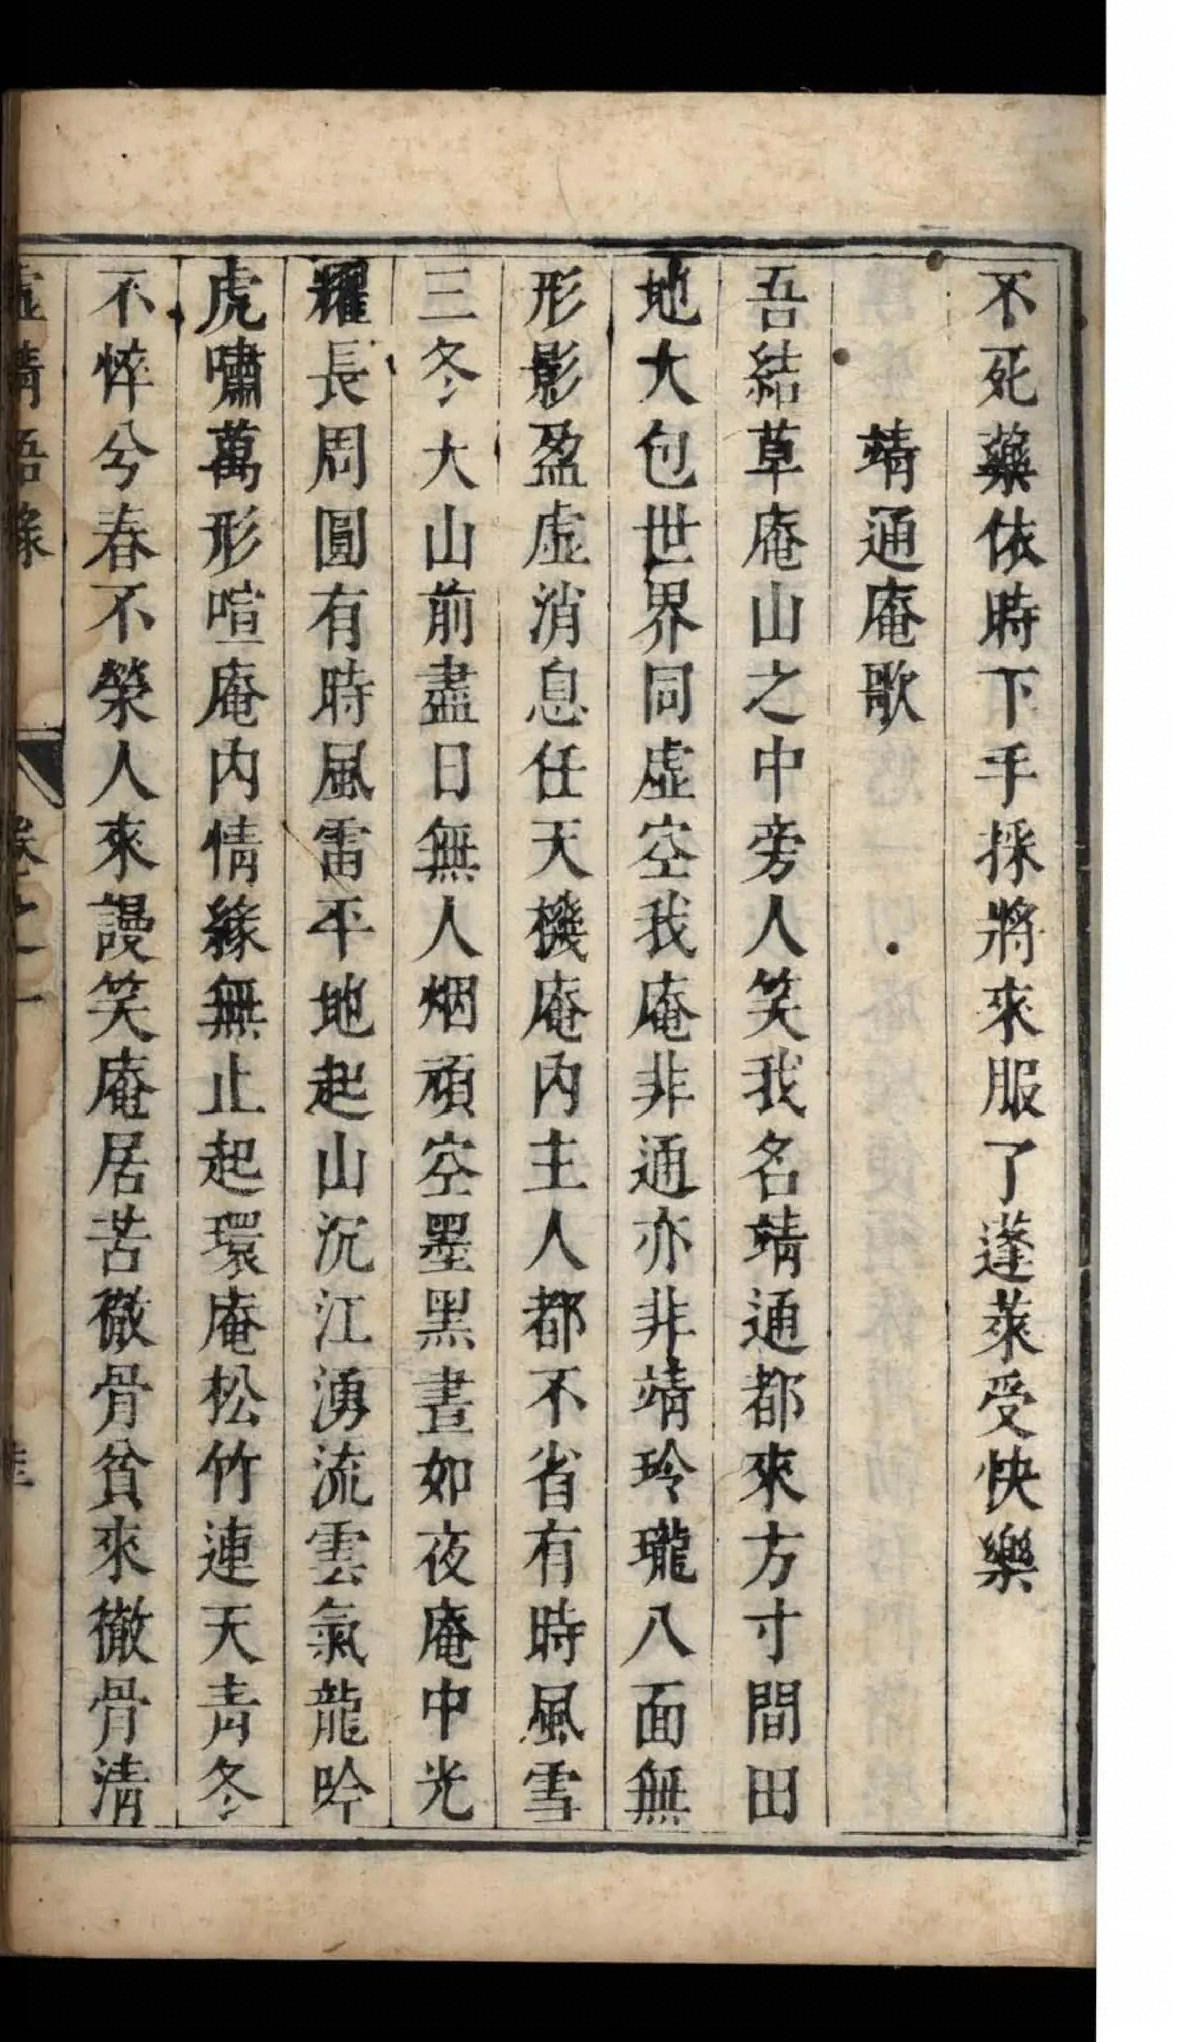 不死藥依時下手採將來服了蓬萊受快樂
靖通庵歌
吾結草庵山之中旁人笑我名靖通都來方寸間田
地大包世界同虛空我庵非通亦非靖玲瓏八面無
形影盈虛消息任天機庵內主人都不省有時風雪
三冬大山前盡日無人烟頑空墨黑晝如夜庵中光
耀長周圓有時風雷平地起山沉江湧流雲氣龍吟
虎嘯萬形喧庵內情緣無止起環庵松竹連天青冬
不悴兮春不榮人來謾笑庵居苦徹骨貧來徹骨清
虛靖語錄 卷之一